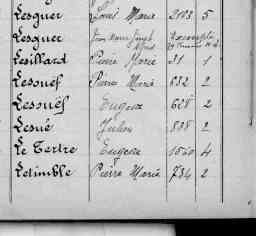 Lesguer Louis Marie 2103 5
Lesguer Jean Marie Joseph
Lesillard Pierre Marie 31 1
Lesouëf Pierre Marie 632 2
Lesouëf Eugène 628 2
Lesué Julien 808 2
Le Tertre Eugène 1540 4
Letimble Pierre Marie 784 2